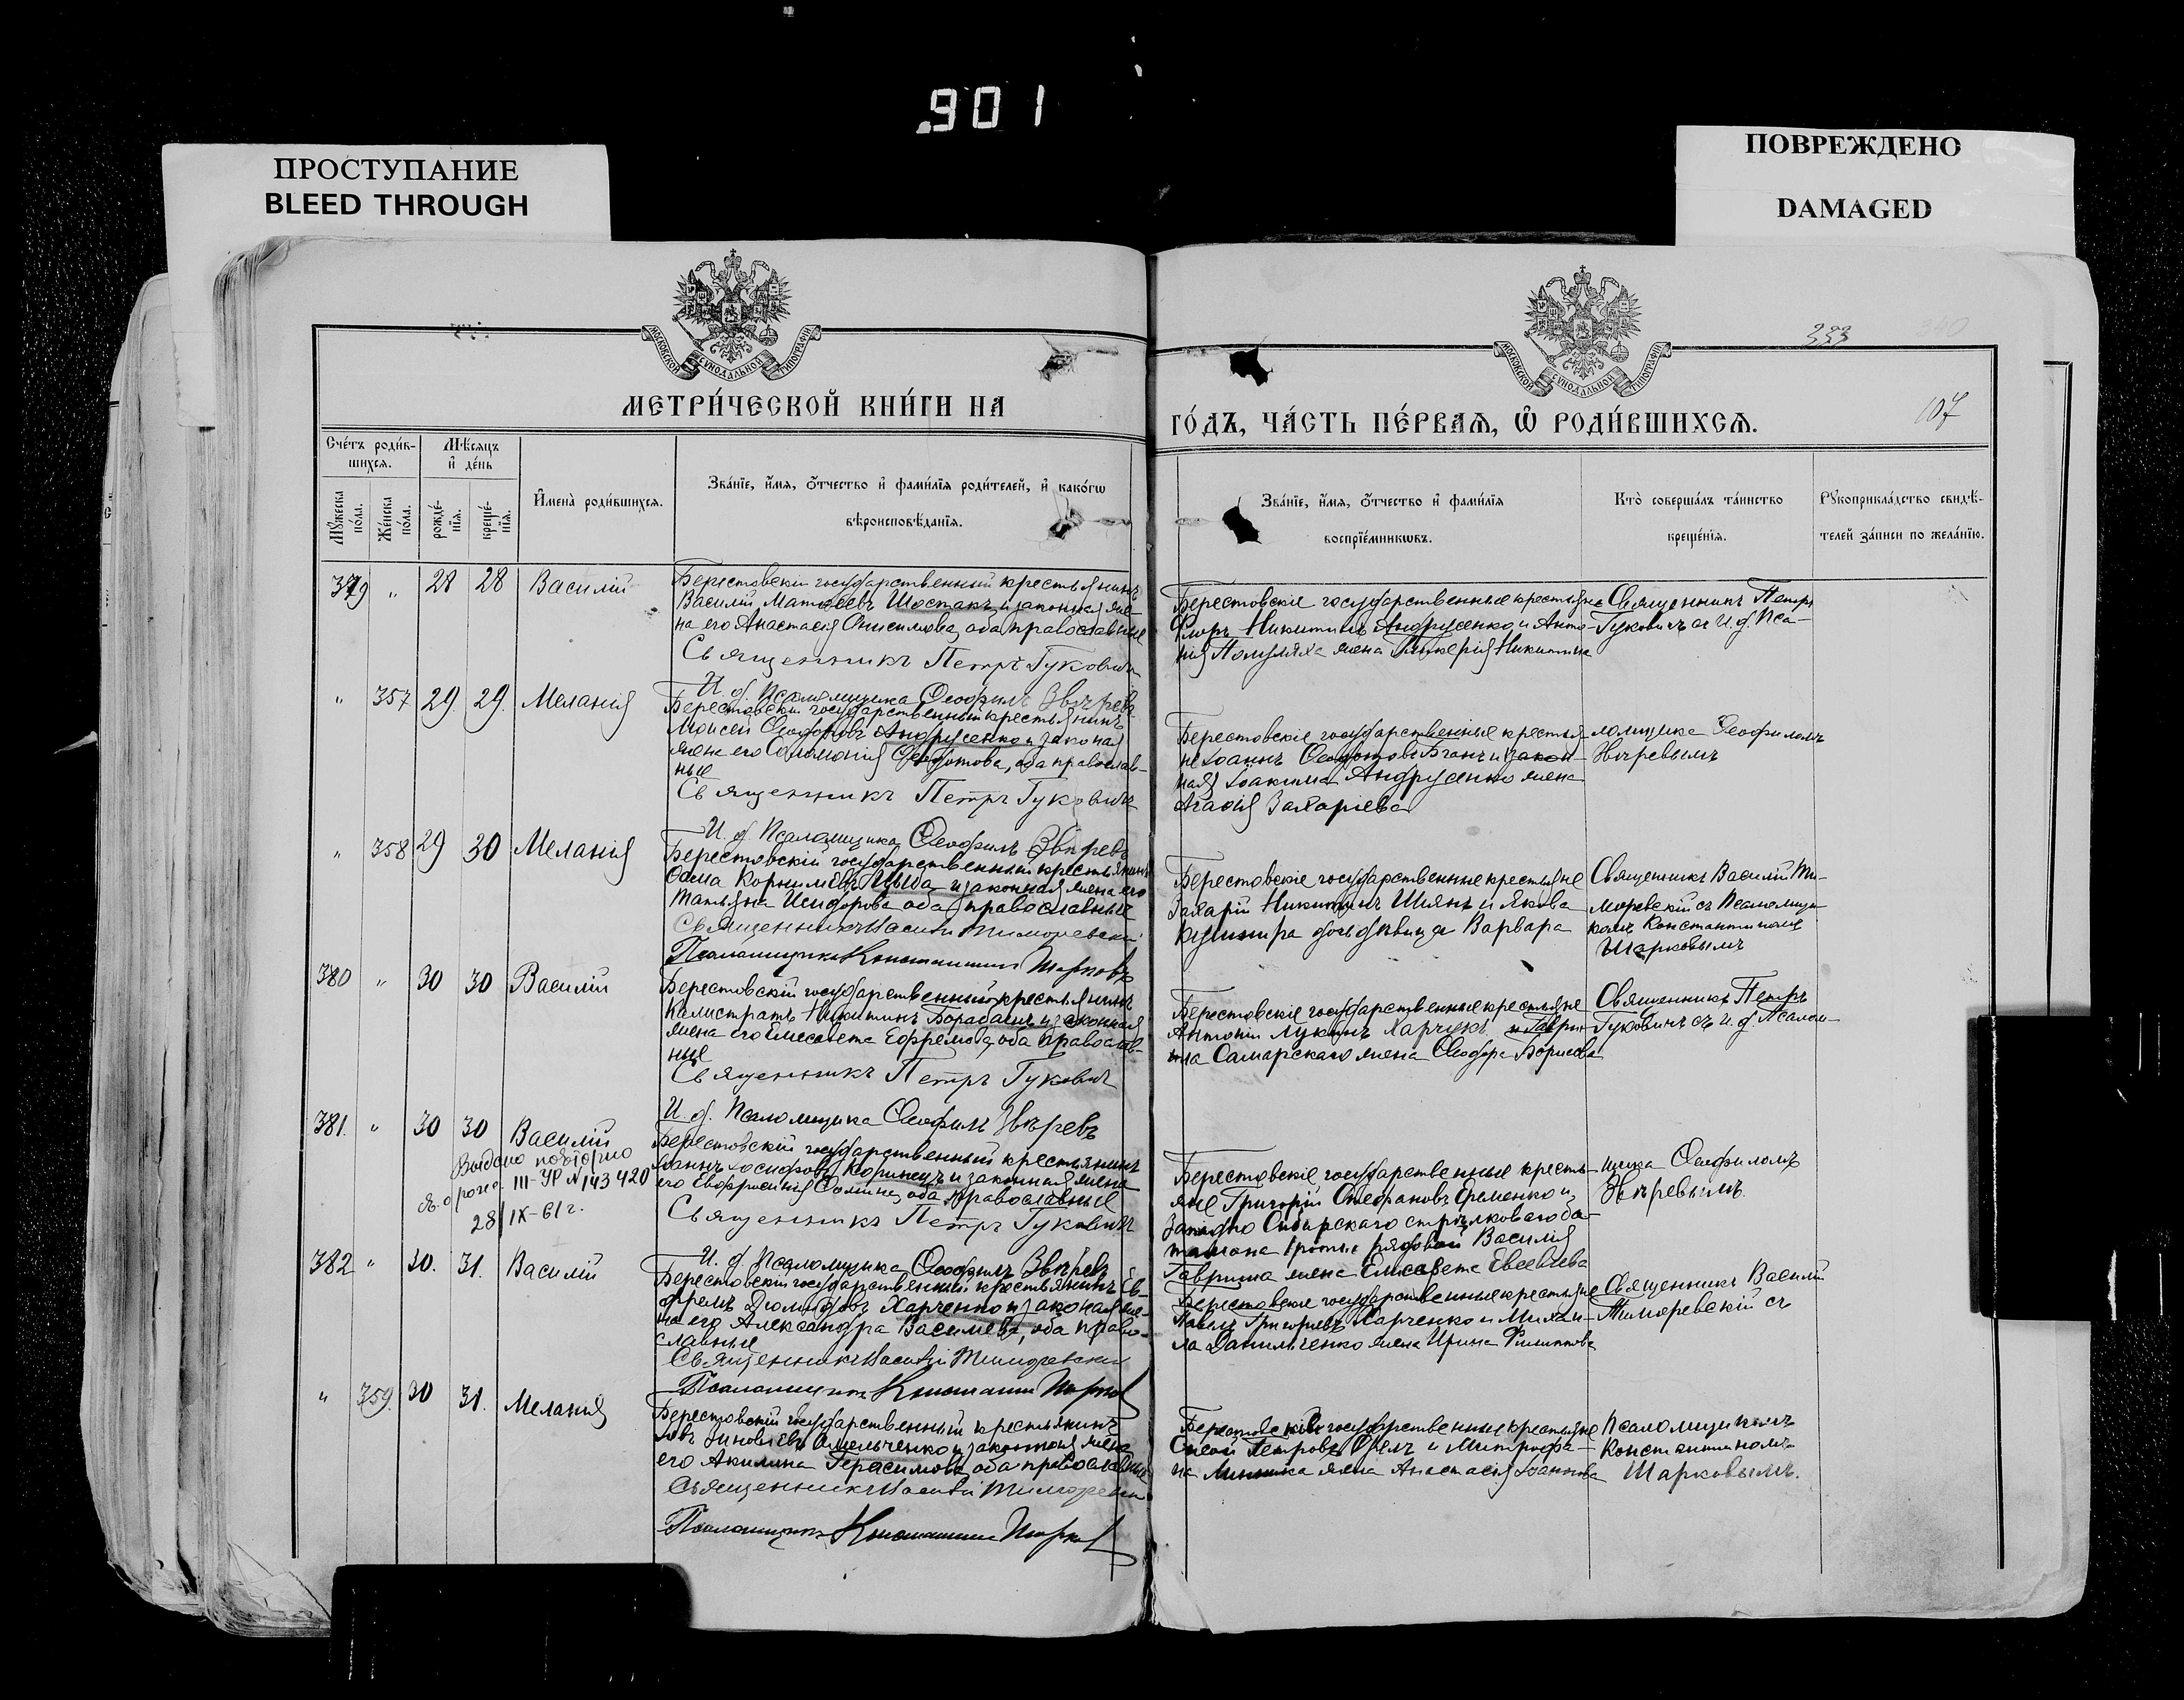 901
ПРОСТУПАНИЕ
BLEED THROUGH
ПОВРЕЖДЕНО
DAMAGED
МОСКОВСКОЙ СѴНОДАЛЬНОЙ ТИПОГРАФІИ
МОСКОВСКОЙ СѴНОДАЛЬНОЙ ТИПОГРАФІИ
333
340
107
МЕТРИ́ЧЕСКОЙ КНИ́ГИ НА
ГО́ДЪ, ЧА́СТЬ ПЕ́РВАѦ, Ѡ҆ РОДИ́ВШИХСѦ.
Сче́тъ роди́в-
шихсѧ.
Мꙋ́жеска
по́ла.
Же́нска
по́ла.
Мѣ́сѧцъ
и҆ де́нь
рожде́-
нїѧ.
креще́-
нїѧ.
И҆мена̀ роди́вшихсѧ.
Зва́нїе, и҆́мѧ, ѻ҆́тчество и҆ фами́лїѧ роди́телей, и҆ како́гѡ
вѣроисповѣ́данїѧ.
Зва́нїе, и҆́мѧ, ѻ҆́тчество и҆ фами́лїѧ
воспрїе́мникѡвъ.
Кто̀ соверша́лъ та́инство
креще́нїѧ.
Рꙋкоприкла́дство свидѣ́-
телей за́писи по жела́нїю.
379 " 28 28 Василій
Берестовскій государственный крестьянинъ
Василій Матѳеевъ Шостакъ и законная же-
на его Анастасія Онисимова, оба православные
Священникъ Петръ Гуковичъ
И. д. Псаломщика Ѳеофилъ Звѣревъ
Берестовскіе государственные крестьяне
Флоръ Никитинъ Андрусенко и Анто-
нія жена Гликерія Никитина
Священникъ Петръ
Гуковичъ съ И. д. Пса-
" 357 29 29. Меланія
Берестовскій государственный крестьянинъ
Моисей Ѳеодоровъ Андрусенко и законая
жена его Соломонія Ѳеодотова, оба православ-
ные
Священникъ Петръ Гуковичъ
И. д. Псаломщика Ѳеофилъ Звѣревъ
Берестовскіе государственные крестья-
не Іоаннъ Ѳеодотовъ и закон-
ная Іоакима Андрусенко жена
Агаѳія Захаріева
ломщика Ѳеофиломъ
Звѣревымъ
" 358 29 30 Меланія
Берестовскій государственный крестьянинъ
Ѳома Корниліевъ Цыба и законная жена его
Татьяна Исидорова оба православные
Священникъ Василій Тиморевскій
Псаломщикъ Константинъ Шарковъ
Берестовскіе государственные крестьяне
Захарій Никитинъ Шиянъ и Якова
Кушнира дочь дѣвица Варвара
Священникъ Василій Ти-
моревскій съ Псаломщи-
комъ Константиномъ
Шарковымъ
380 " 30 30 Василій
Берестовскій государственный крестьянинъ
Калистратъ Никитинъ Борабашъ и законная
жена его Елисавета Ефремова, оба православ-
ные
Священникъ Петръ Гуковичъ
И. д. Псаломщика Ѳеофилъ Звѣревъ
Берестовскіе государственные крестьяне
Антоній Лукинъ Харчукъ и Гаври-
ила Самарскаго жена Ѳеодора Борисова
Священникъ Петръ
Гуковичъ съ И. д. Псалом-
381. " 30 30 Василій
Выдано повторно
св. о рожд. III-УР N 143420
28/IX-61 г.
Берестовскій государственный крестьянинъ
Іоаннъ Іосифовъ Коринецъ и законная жена
его Евфросинія Ѳомина, оба православные
Священникъ Петръ Гуковичъ
И. д. Псаломщика Ѳеофилъ Звѣревъ
Берестовскіе государственные кресть-
яне Григорій Стефановъ Еременко и
Западно Сибирскаго стрѣлковаго ба-
таліона роты рядовой Василія
Гавриша жена Елисавета Евсевіева
щика Ѳеофиломъ
Звѣревымъ.
382 " 30. 31. Василій
Берестовскій государственный крестьянинъ Еѳ-
фремъ Діомидовъ Харченко и законая же-
на его Александра Василіева, оба право-
славные
Священникъ Василій Тиморевскій
Псаломщикъ Константинъ Шарковъ
Берестовскіе государственные крестьяне
Павелъ Григорьевъ Харченко и Михаи-
ла Данильченко жена Ирина Филиппова
Священникъ Василій
Тиморевскій съ
" 359. 30 31. Меланія
Берестовскій государственный крестьянинъ
Іовъ Зиновіевъ Омельченко и законная жена
его Акилина Герасимова, оба православные
Священникъ Василій Тиморевскій
Псаломщикъ Константинъ Шарковъ
Берестовскіе государственные крестьяне
Петровъ Орелъ и Митрофа-
на жена Анастасія Іоаннова
Псаломщикомъ
Константиномъ
Шарковымъ.